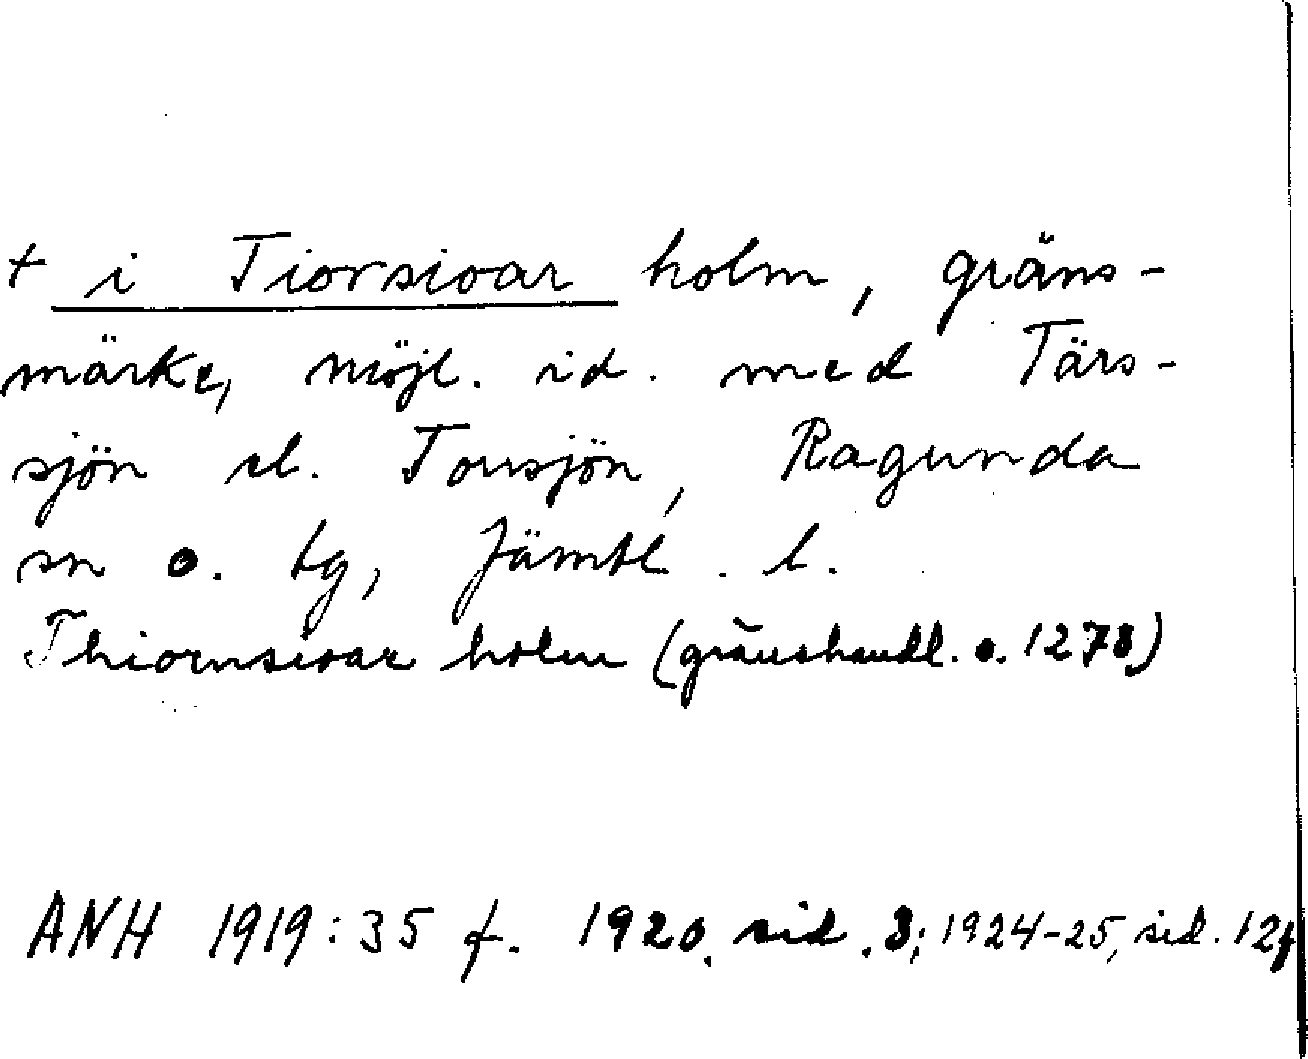 + i Tiorsioar holm, gräns-
märke, möjl. id. med Tärs-
sjön el. Torrsjön, Ragunda
sn o. tg, Jämtl. l.
Thiornsioar holm (gränshandl. o. 1273)
ANH 1919:35 f. 1920. sid. 3; 1924-25, sid. 12f